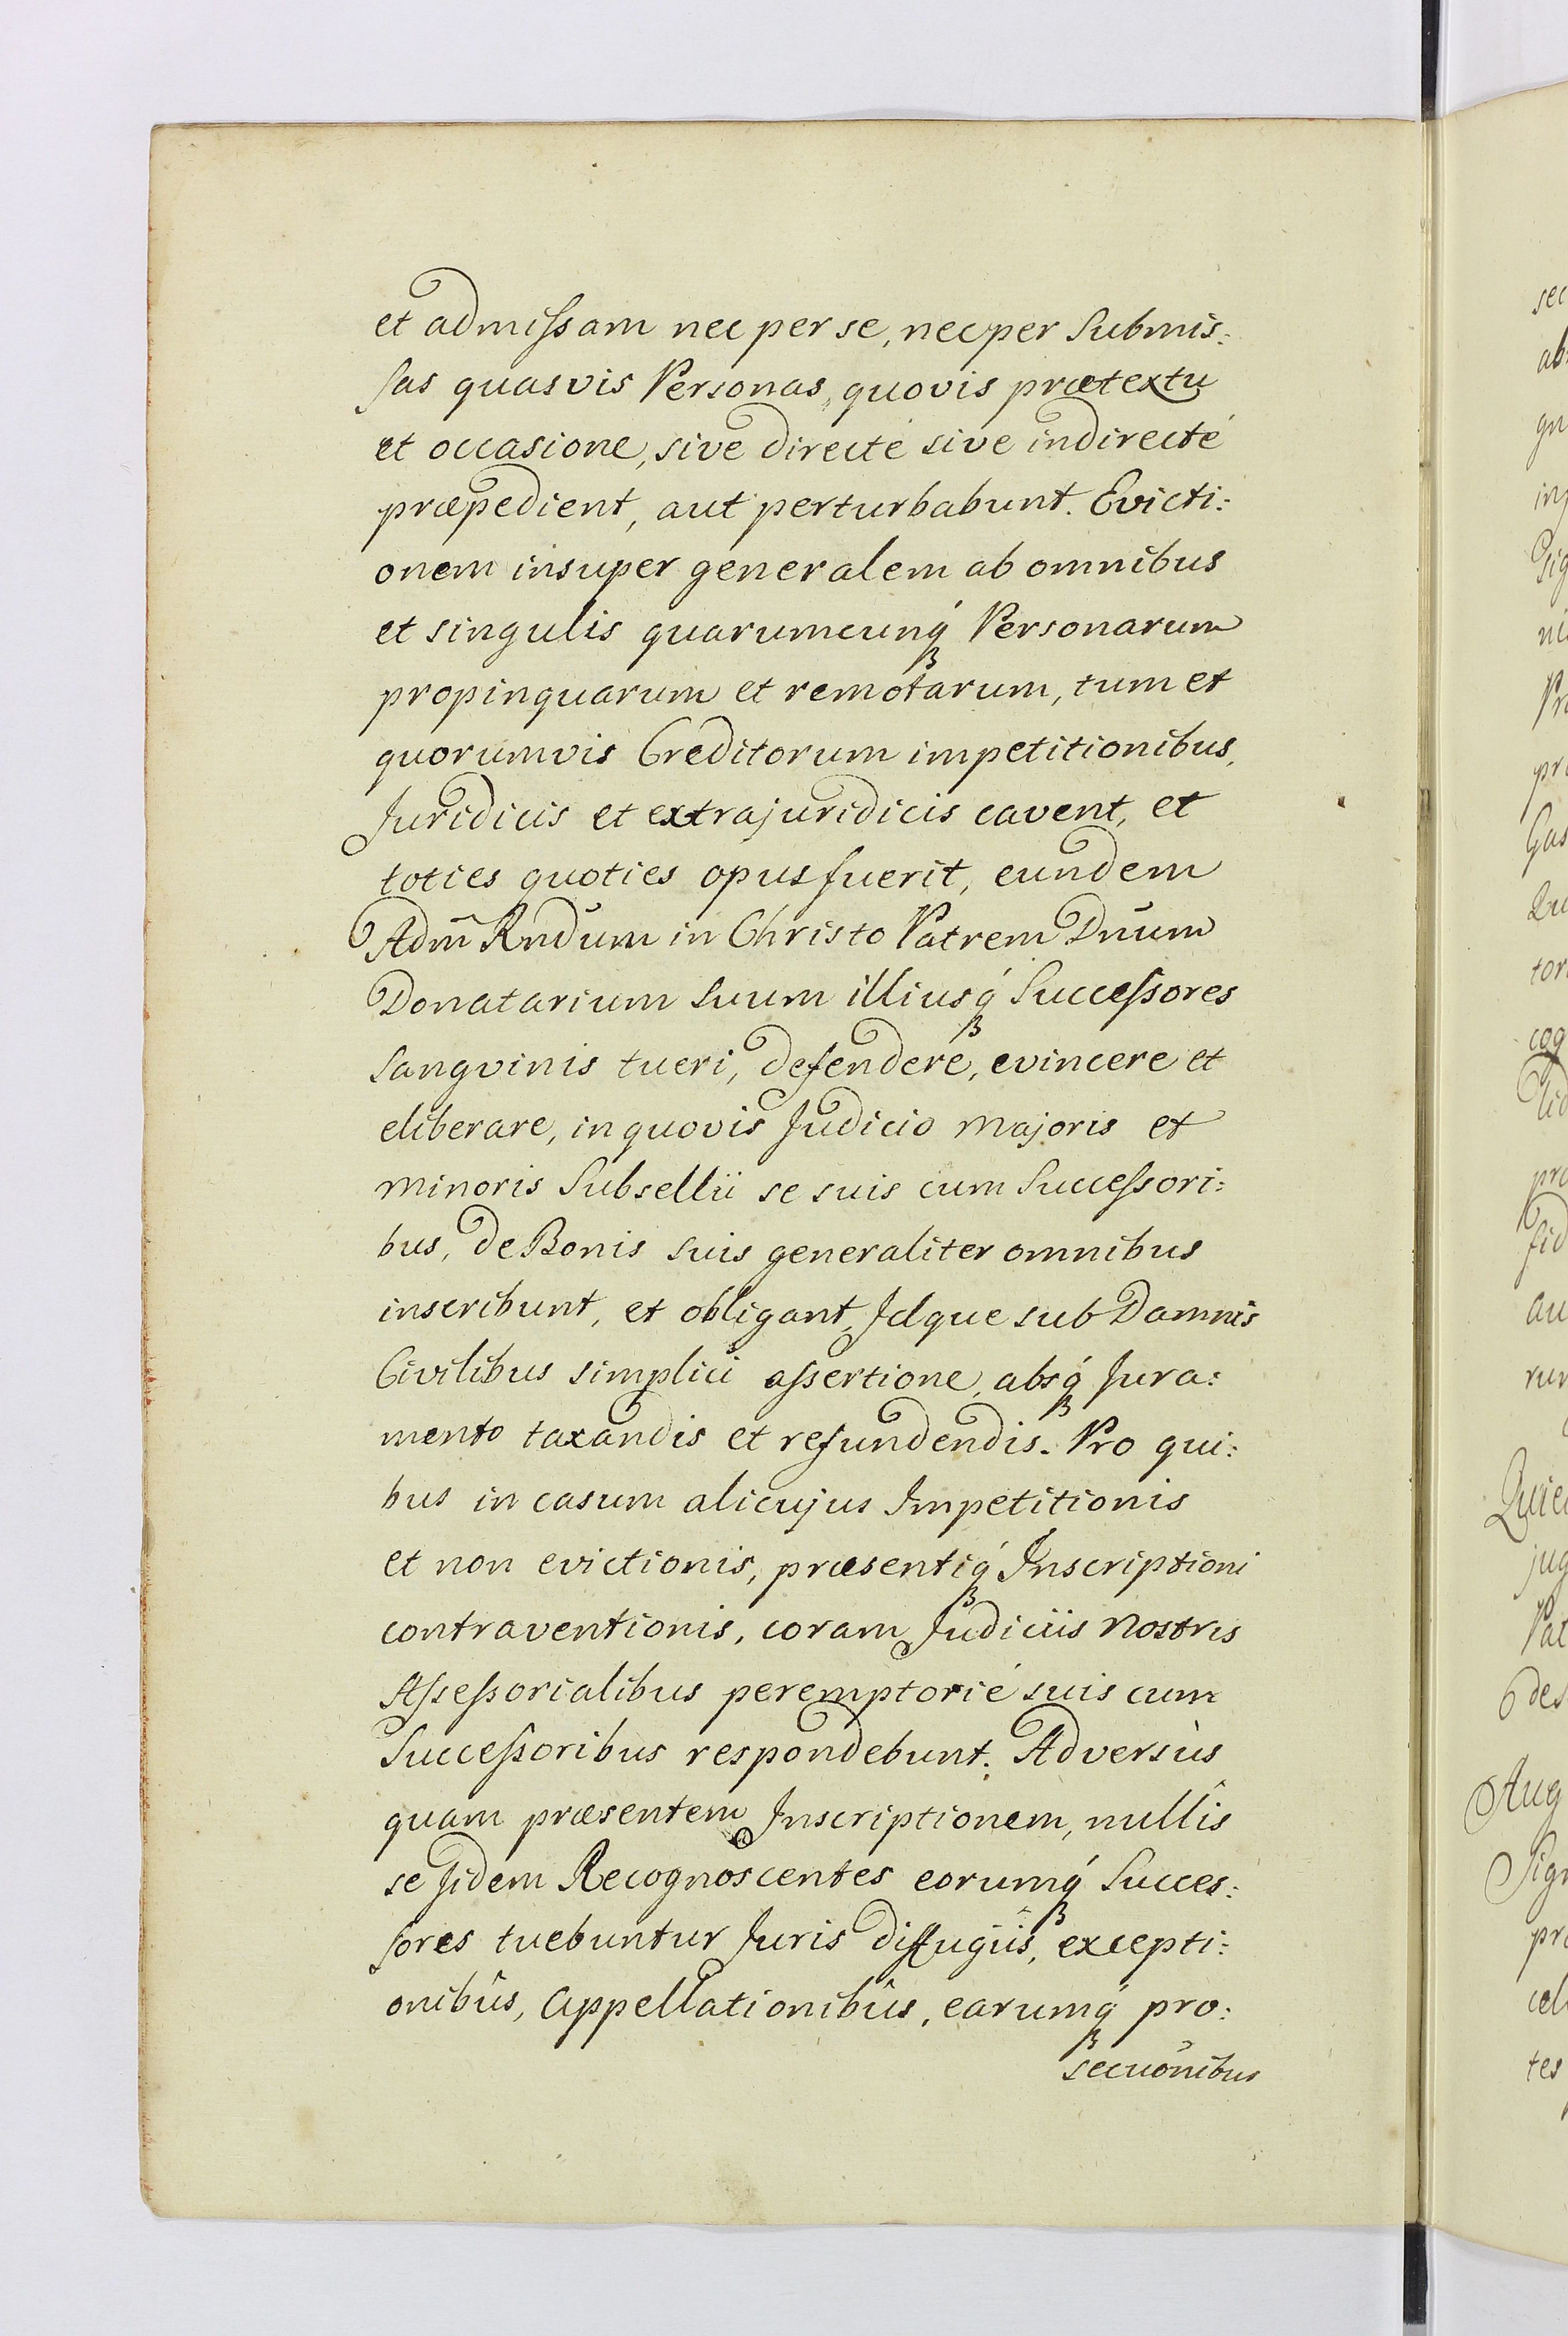 et admissam nec per se, nec per Submis:
sas quasvis Personas, quovis prætextu
et occasione, sive directé sive indirecté
præpedient, aut perturbabunt. Evicti:
onem insuper generalem ab omnibus
et singulis quarumcunq́ Personarum
propinquarum et remotarum, tum et
quorumvis Creditorum impetitionibus,
Juridicis et extrajuridicis cavent, et
toties quoties opus fuerit, eundem
Adm̃ Rndum in Christo Patrem Dnum
Donatarium suum illiusq́ Successores
Sangvinis tueri, defendere, evincere et
eliberare, in quovis Judicio Majoris et
Minoris Subsellii se suis cum Successori:
bus, de Bonis suis generaliter omnibus
inscribunt, et obligant, Idque sub Damnis
Civilibus simplici assertione, absq́ Jura:
mento taxandis et refundendis. Pro qui:
bus in casum alicujus Impetitionis
et non evictionis, præsentiq́ Inscriptioni
contraventionis, coram Judiciis Nostris
Assessorialibus peremptorié suis cum
Successoribus respondebunt. Adversùs
quam præsentem Inscriptionem, nullîs
se Jidem Recognoscentes eorumq́ Succes:
sores tuebuntur Juris diffugiîs, excepti:
onibûs, Appellationibûs, earumq́ pro:
secuonibus
sec
ab
gn
inp
sig
Pro
pro
Gas
tor
cog
lid
pro
fid
au
rum
Quie
jug
Pat
des
Aug
Sign
pro
cel
tes